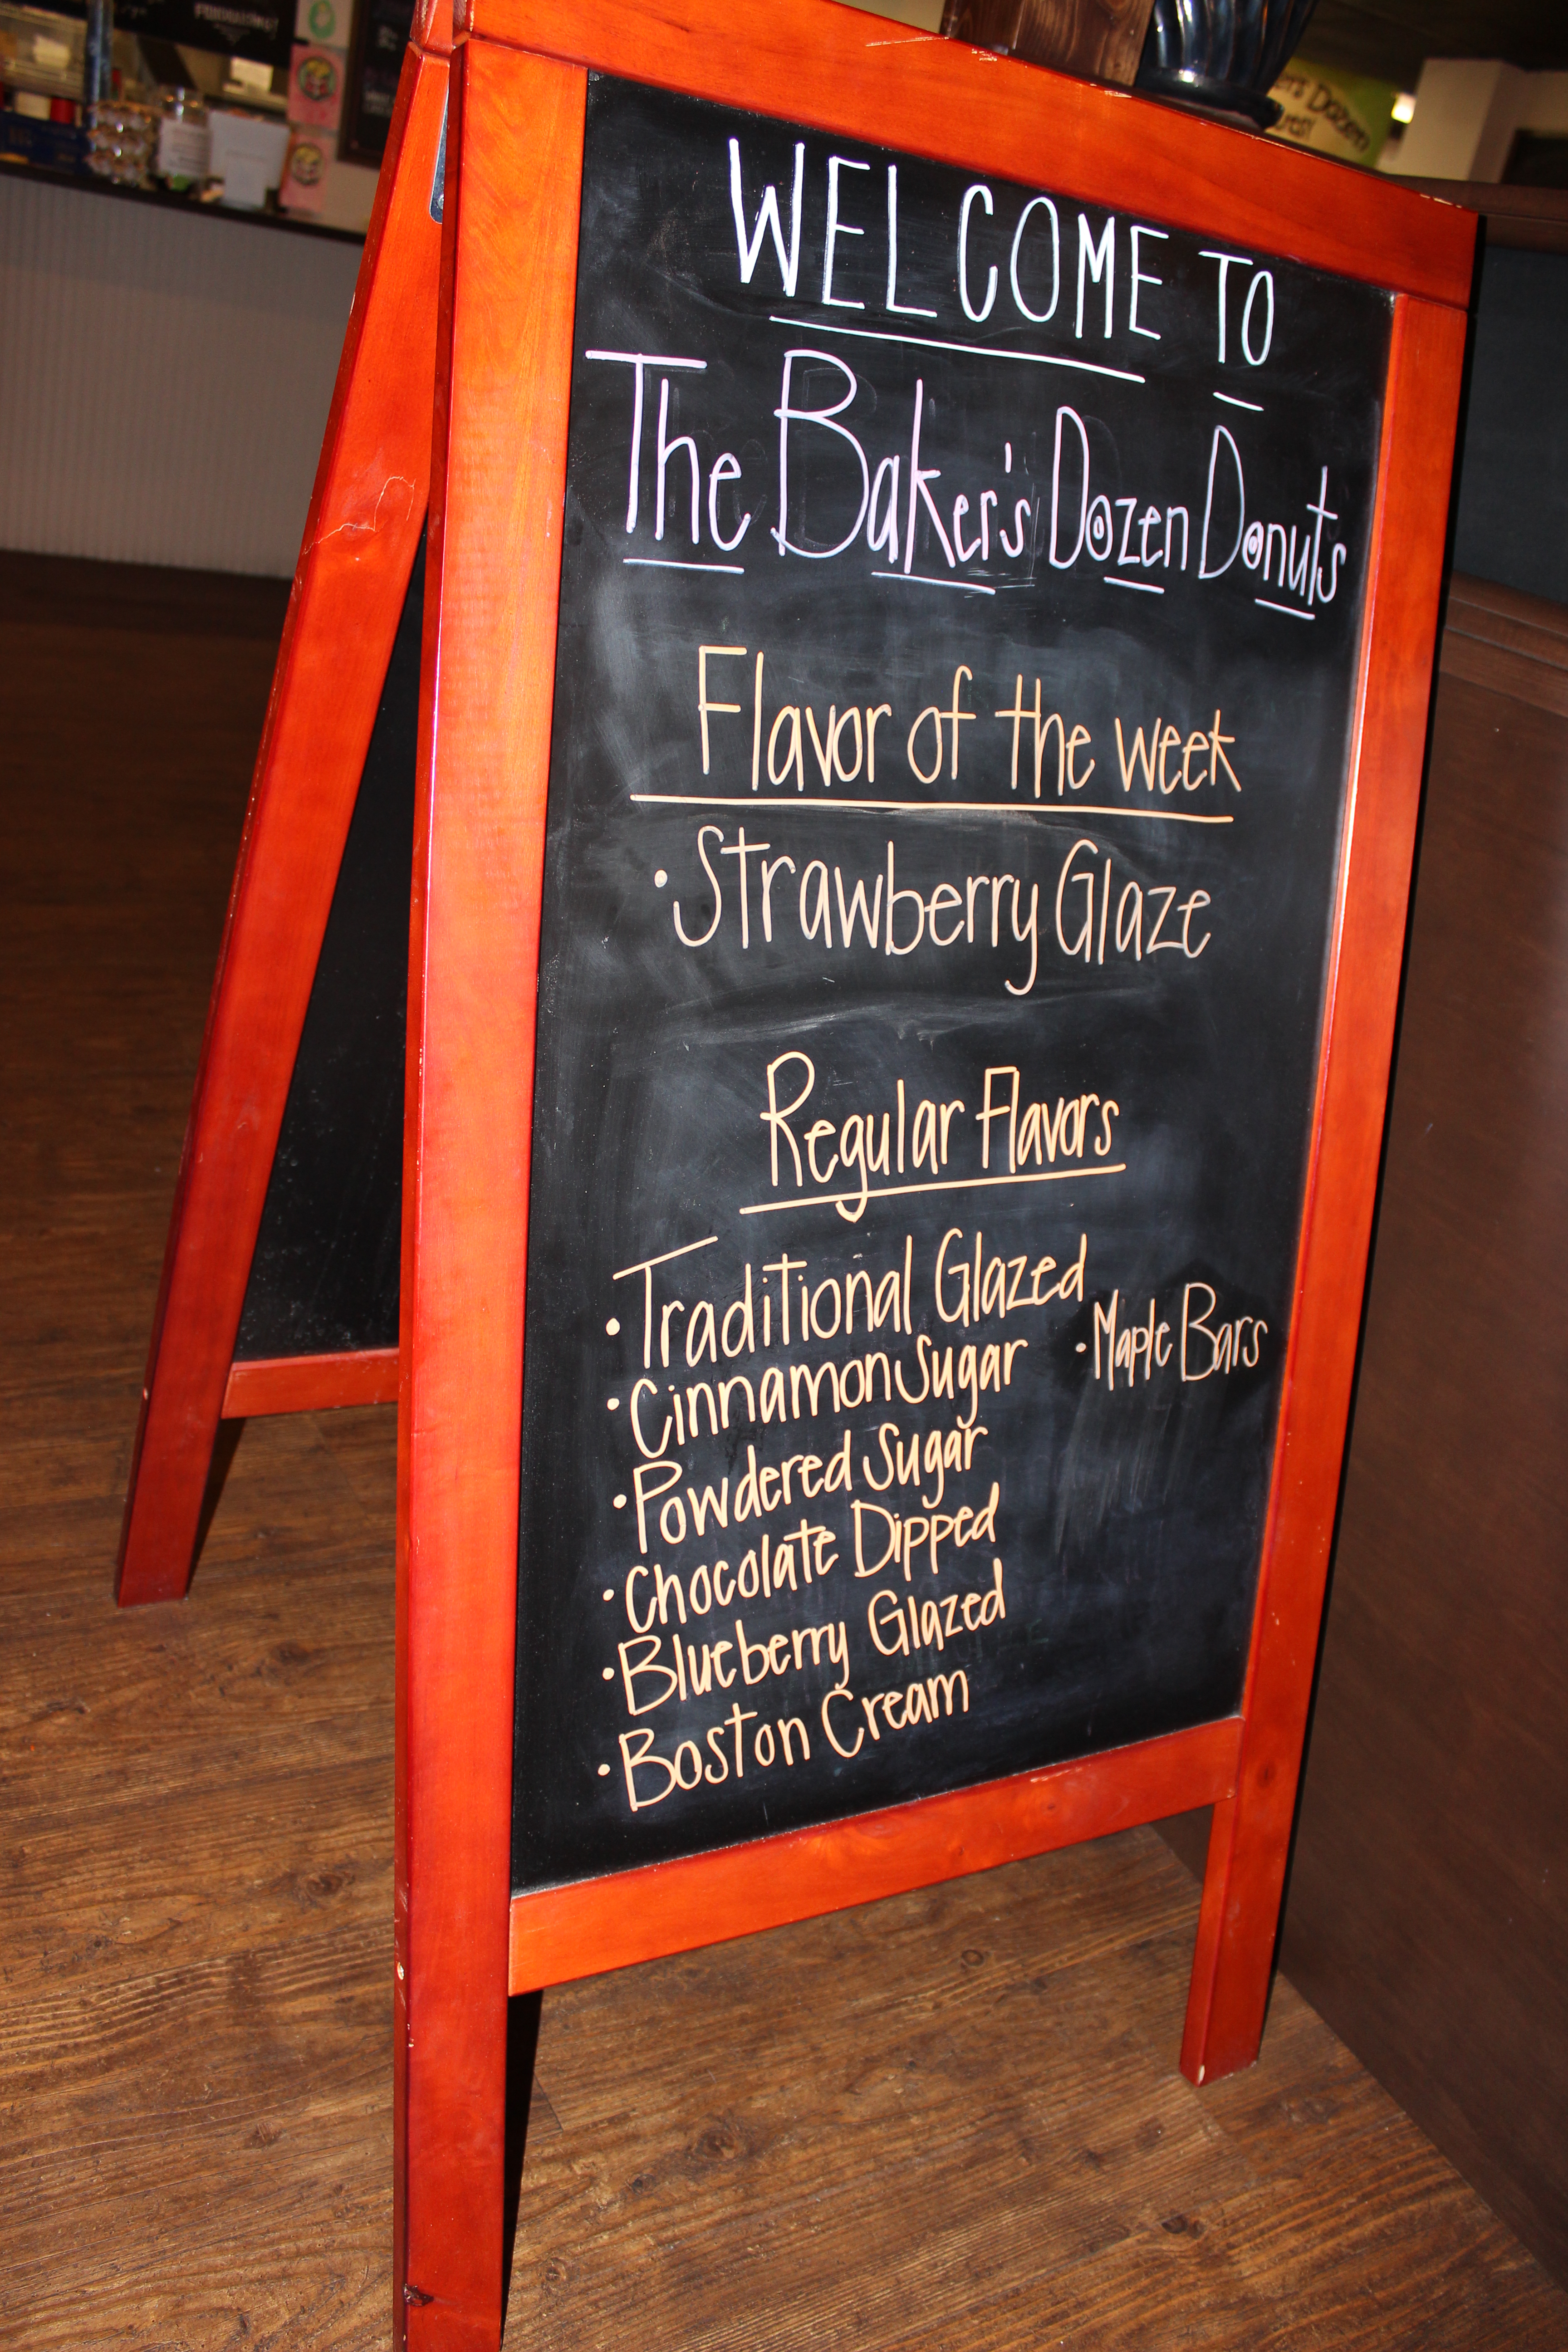 WELCOME TO
The Baker's Dozen Donuts
Flavor of the week
• Strawberry Glaze
Regular Flavors
• Traditional Glazed
• Cinnamon Sugar
• Powdered Sugar
• Chocolate Dipped
• Blueberry Glazed
• Boston Cream
• Maple Bars
Dozen